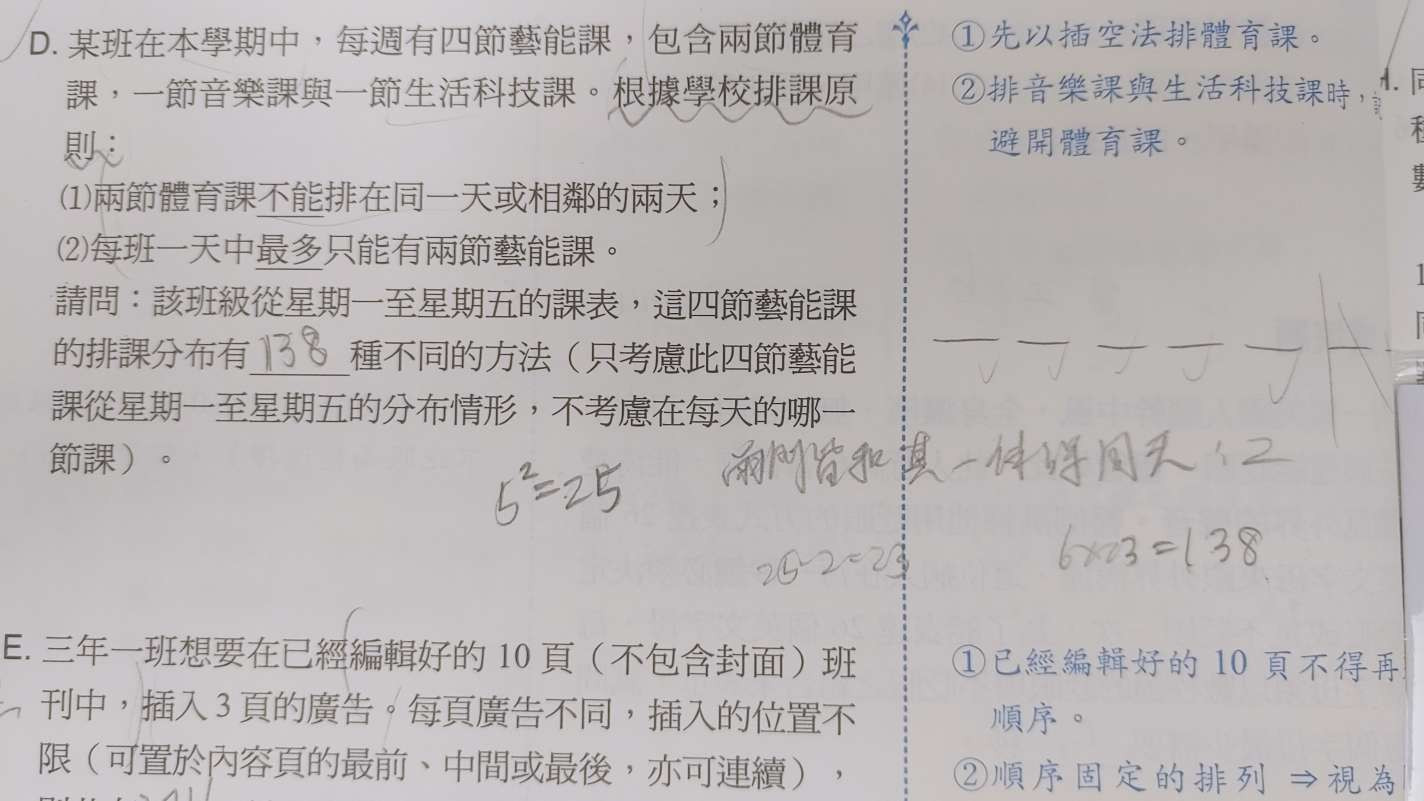 D. 某班在本學期中,每週有四節藝能課,包含兩節體育
課,一節音樂課與一節生活科技課。根據學校排課原
則:
⑴兩節體育課不能排在同一天或相鄰的兩天;
⑵每班一天中最多只能有兩節藝能課。
請問:該班級從星期一至星期五的課表,這四節藝能課
的排課分布有 138 種不同的方法(只考慮此四節藝能
課從星期一至星期五的分布情形,不考慮在每天的哪一
節課)。
5²=25
兩門皆和其一体課同天:2
25-2=23
6×23=138
①先以插空法排體育課。
②排音樂課與生活科技課時,
避開體育課。
E. 三年一班想要在已經編輯好的 10 頁(不包含封面)班
刊中,插入 3 頁的廣告。每頁廣告不同,插入的位置不
限(可置於內容頁的最前、中間或最後,亦可連續),
①已經編輯好的 10 頁不得再
順序。
②順序固定的排列 ⇒ 視為
1. 同
種
數